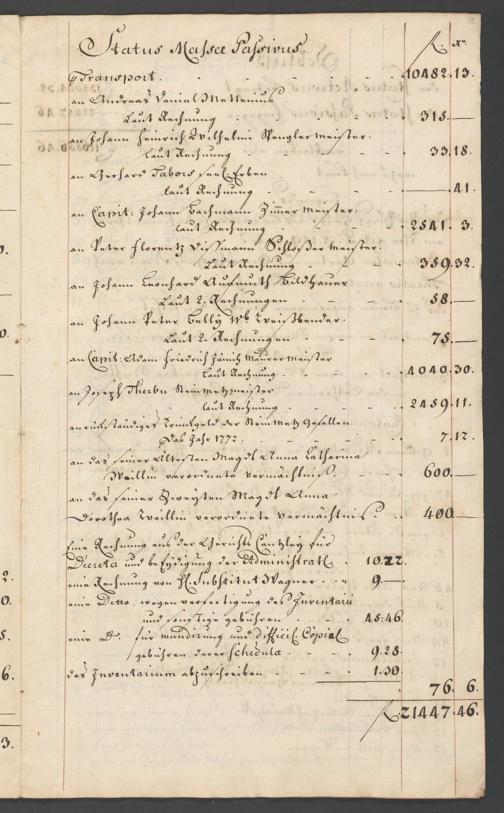 Status Massae Passivus.
fl. xr.
Transport. 10482. 13.
an Andreas Daniel Mettenius
laut Rechnung 315. —
an Johann Heinrich Wilhelmi Spenglermeister.
laut Rechnung 33. 18.
an Gerhard Tabors seel. Erben
laut Rechnung — 41.
an Capit: Johann Bachmann Zimermeister.
laut Rechnung 2541. 3.
an Peter Florentz Dißmann Schloßermeister.
laut Rechnung 359. 32.
an Johann Leonhard Aufmuth Bildhauer
laut 2. Rechnungen 58. —
an Johann Peter Belly Weißbender.
laut 2. Rechnungen 75. —
an Capit: Adam Friedrich Maurermeister
laut Rechnung 4040. 30.
an Joseph Therbu Steinmetzmeister
laut Rechnung 2459. 11.
an rückständiges Trinkgeld der Steinmetz Gesellen
das Jahr 1772. 7. 12.
an das seiner Ältesten Magdl Anna Catharina
Weillin verordnete Vermächtniß. 600. —
an das seiner Zweyten Magdl Anna
Dorothea Weillin verordnete Vermächtniß. 400. —
Eine Rechnung aus der Gerichts Cantzley für
Decreta und beeydigung der Administratl. 10. 22.
eine Rechnung von H. Substitut Wagner. 9. —
eine Ditto. wegen verfertigung des Inventarii
und sonstige gebühren 45: 46.
eine Do. für mundirung und Copial
gebühren derer Schedula 9. 28.
das Inventarium abzuschreiben 1. 30.
76. 6.
fl. 21447. 46.